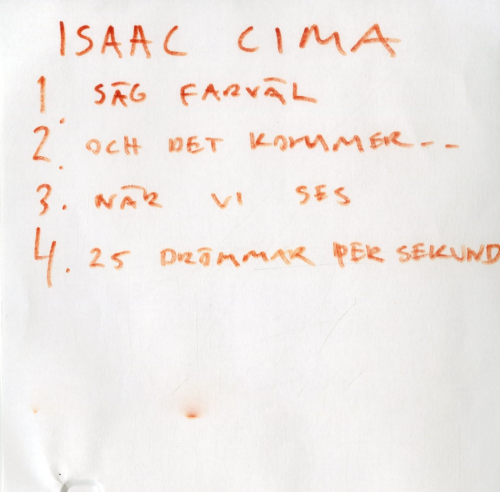 ISAAC CIMA
1. SÄG FARVÄL
2. OCH DET KOMMER...
3. NÄR VI SES
4. 25 DRÖMMAR PER SEKUND